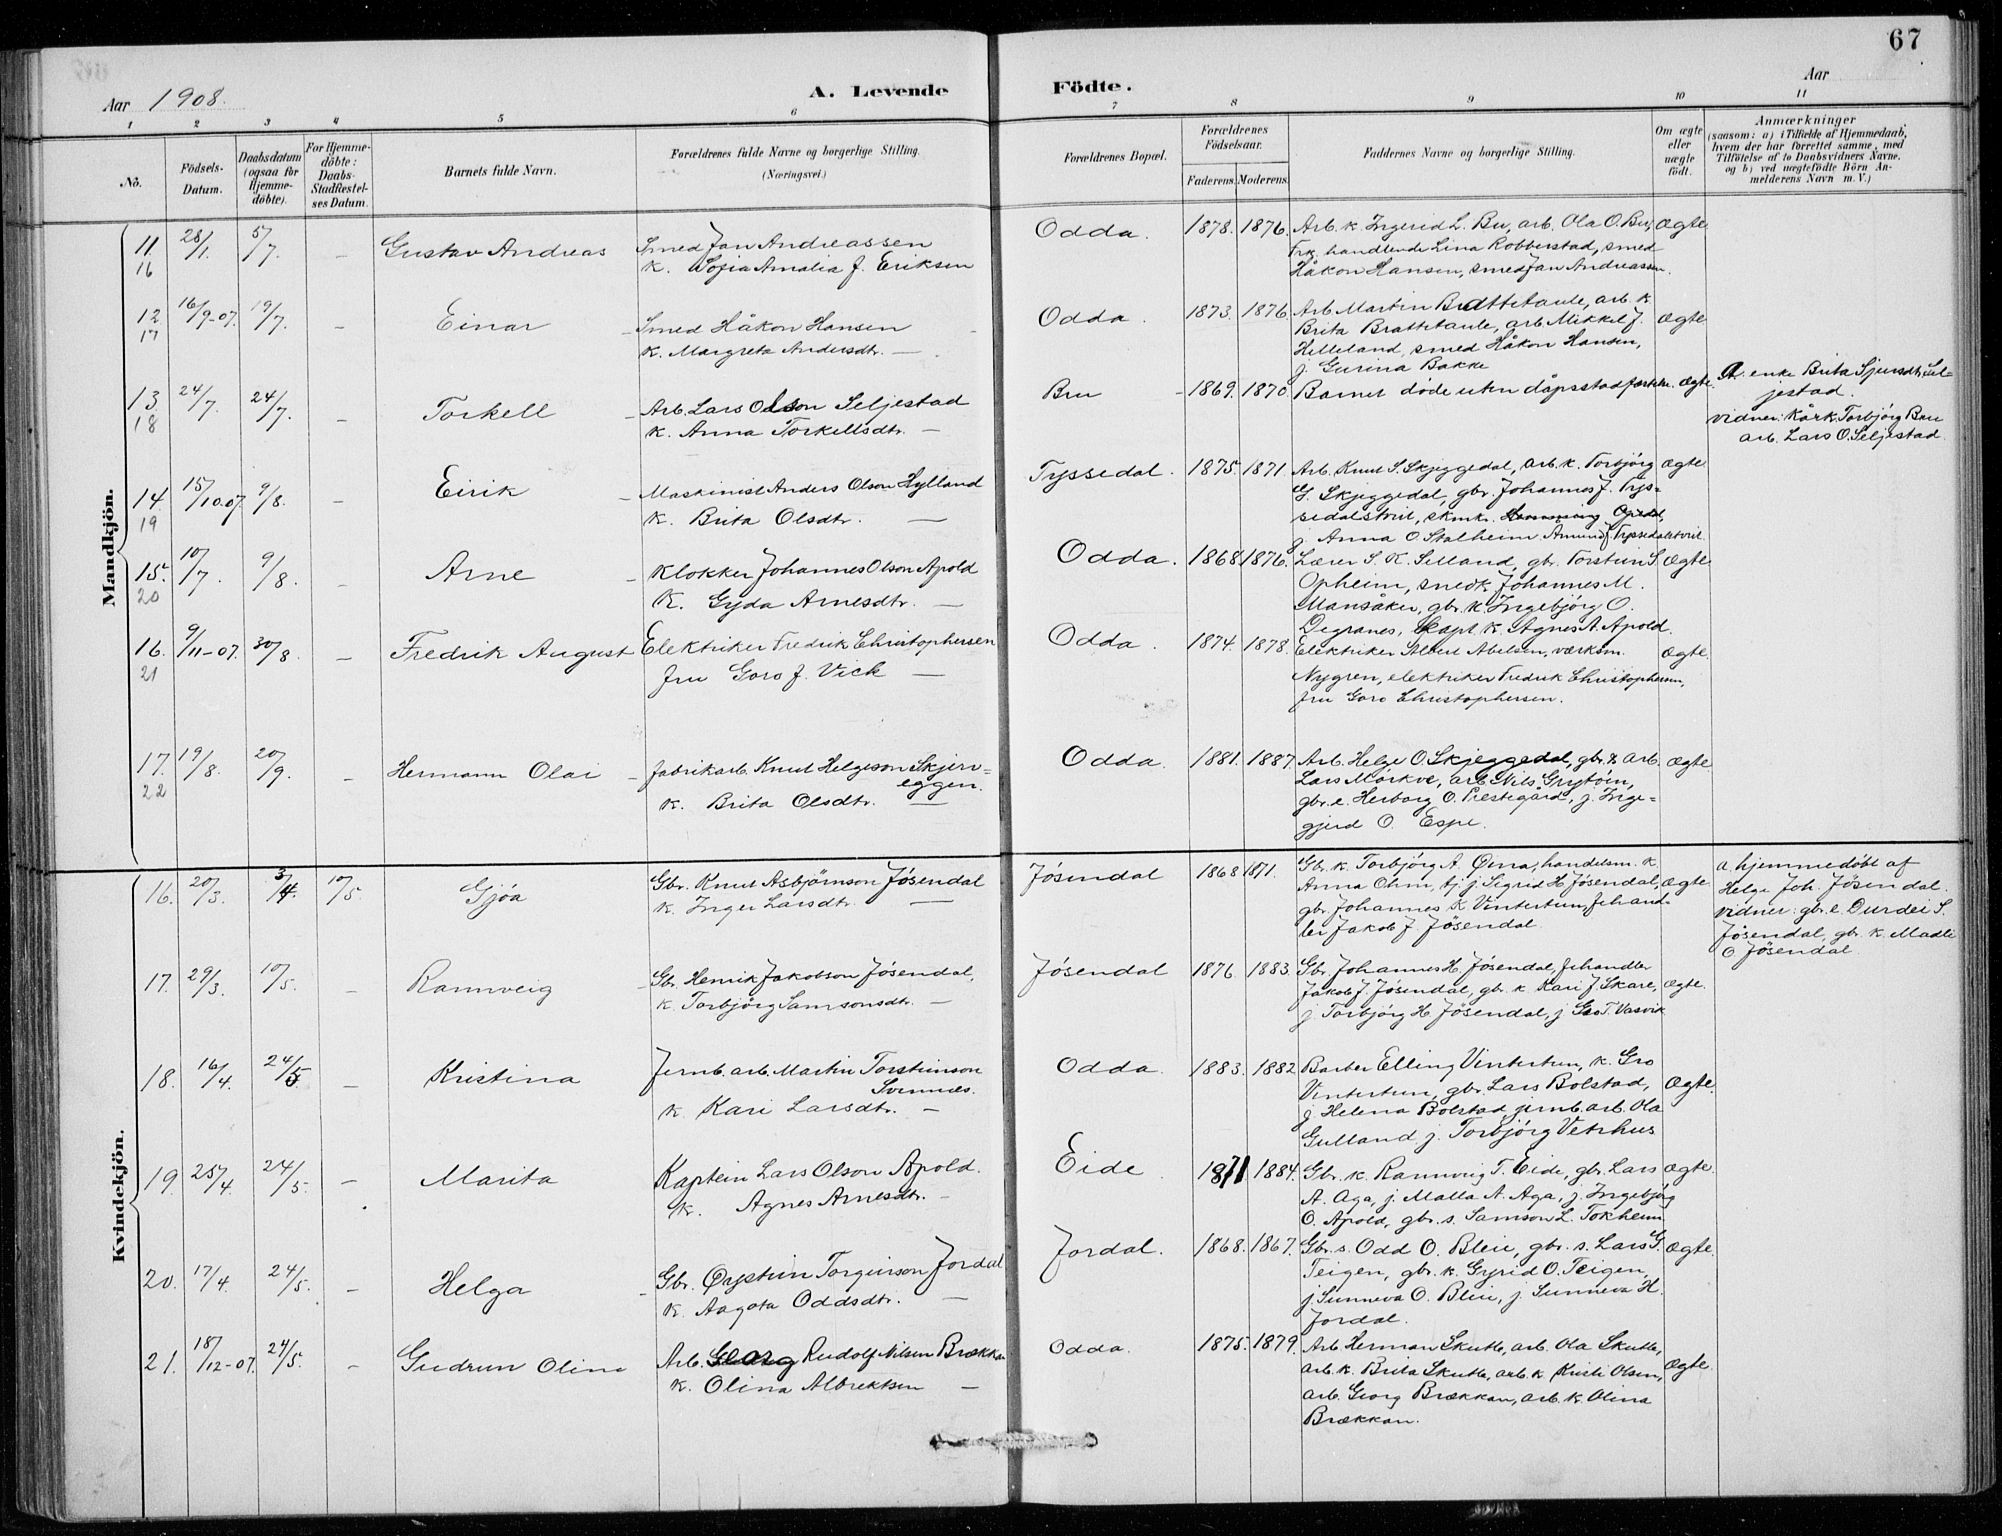 67
Aar 1908.
A. Levende Födte.
Aar
1 2 3 4 5 6 7 8 9 10 11
No.
Födsels-Datum.
Daabsdatum (ogsaa for Hjemme-döbte).
For Hjemme-döbte: Daabs-Stadfæstel-ses Datum.
Barnets fulde Navn.
Forældrenes fulde Navne og borgerlige Stilling.
(Næringsvei.)
Forældrenes Bopæl.
Forældrenes Födselsaar.
Faderens. Moderens.
Faddernes Navne og borgerlige Stilling.
Om ægte eller uægte födt.
Anmærkninger
(saasom: a) i Tilfælde af Hjemmedaab,
hvem der har forrettet samme, med
Tilföielse af to Daabsvidners Navne.
og b) ved uægtefödte Börn An-
melderens Navn m. V.)
Mandkjön.
11. 16 28/1. 5/7. - Gustav Andreas
Smed Jan Andreassen
k. Sofia Amalia f. Eriksen
Odda. 1878. 1876.
Arb. k. Ingerid L. Bu, arb. Ola O. Bu,
Frk. handlende Lina Robberstad, smed
Håkon Hansen, smed Jan Andreassen.
Ægte.
12 17 16/9-07. 19/7. - Einar
Smed Håkon Hansen
k. Margreta Andersdtr. —
Odda. 1873. 1876.
Arb. Martin Brattetaule, arb. k.
Brita Brattetaule, arb. Mikkel J.
Helleland, smed Håkon Hansen,
j. Gurina Bakke
Ægte.
13 18 24/7. 24/7. - Torkell
Arb. Lars Olson Seljestad
k. Anna Torkellsdtr. —
Bru 1869. 1870.
Barnet döde uten dåpsstadfæstelse. Ægte.
A. enke Brita Sjursdtr. Sel-
jestad.
vidner: kårk. Torbjörg Bru
arb. Lars O. Seljestad
14 19 15/10.07. 9/8. - Eirik
Maskinist Anders Olson Hylland
k. Brita Olsdtr. —
Tyssedal. 1875. 1871.
Arb. Knut S. Skjeggedal, arb. k. Torbjörg
G. Skjeggedal, gbr. Johannes J. Tys-
sedalstveit, skmkr. Hemming Opedal,
j. Anna O. Stalheim Amund J. Tyssedalstveit
Ægte.
15. 20 10/7. 9/8. - Arne
Klokker Johannes Olson Apold
K. Gyda Arnesdtr. —
Odda. 1868. 1876.
Lærer S. K. Selland, gbr. Torstein S.
Opheim, snedk. Johannes M.
Mansåker, gbr. k. Ingebjörg O.
Degranes, kapt. k. Agnes A. Apold.
Ægte.
16. 21 9/11-07. 30/8. - Fredrik August
Elektriker Fredrik Christophersen
fru Goro f. Vick —
Odda. 1874. 1878.
Elektriker Albert Abelsen, værksm.
Nygren, elektriker Fredrik Christophersen,
fru Goro Christophersen.
Ægte.
17. 22 19/8. 20/9. - Hermann Olai
fabrikarb. Knut Helgeson Skjerv-
eggen.
k. Brita Olsdtr. —
Odda. 1881. 1887.
Arb. Helge O. Skjeggedal, gbr. & arb.
Lars Mörkve, arb. Nils Grytöin,
gbr. e. Herborg O. Prestegård, j. Inge-
gjerd O. Espe.
Ægte.
Kvindekjön.
16. 20/3. 3/4. 10/5. Gjóa
Gbr. Knut Asbjörnson Jósendal
k. Inger Larsdtr. —
Jósendal 1868 1871.
Gbr. k. Torbjörg A. Qvna, handelsm. k.
Anna Ohm, tj. j. Sigrid H. Jósendal,
gbr. Johannes K. Vintertun, fehand-
ler Jakob J. Jösendal
Ægte
a hjemmedöbt af
Helge Joh. Jösendal.
vidner: gbr. e. Durdei S.
Jösendal, gbr. k. Madli
O Jösendal
17. 29/3. 10/5. - Rannveig
Gbr. Henrik Jakobson Jósendal,
k. Torbjörg Samsonsdtr. —
Jósendal 1876. 1883.
Gbr. Johannes H. Jösendal, fehandler
Jakob J. Jósendal, gbr. k. Kari J. Skare,
j. Torbjörg H. Jösendal, j. Gro T. Vasvik
Ægte.
18. 16/4. 24/5 - Kristina
Jernb. arb. Martin Torsteinson
Svennes.
k. Kari Larsdtr. —
Odda. 1883. 1882
Barber Elling Vintertun, k. Gro
Vintertun, gbr. Lars Bolstad,
j. Helena Bolstad, jernb. arb. Ola
Gulland j. Torbjörg Vetrhus
Ægte.
19. 25/4. 24/5. - Marita
Kaptein Lars Olson Apold.
k. Agnes Arnesdtr. —
Eide 1871 1884.
Gbr. k. Rannveig T. Eide, gbr. Lars
A. Aga, j. Malla A. Aga, j. Ingebjörg
O. Apold, gbr. s. Samson L. Tokheim
Ægte.
20. 17/4. 24/5. - Helga
Gbr. Öystein Torgeirson Jordal
k. Aagota Oddsdtr. —
Jordal. 1868. 1867.
Gbr. s. Odd O. Bleie, gbr. s. Lars G.
Teigen, gbr. k. Gyrid O. Teigen,
j. Sunneva O. Bleie, j. Sunneva H.
Jordal.
Ægte.
21. 18/12-07. 24/5. - Gudrun Olina
Arb. Georg Rudolf Nilsen Brækkan
k. Olina Albrektsen —
Odda. 1875. 1879.
Arb. Herman Skutle, arb. Ola Skutle,
arb. k. Brita Skutle, arb. k. Kristi Olsen,
arb. Georg Brækkan, arb. k. Olina
Brækkan.
Ægte.